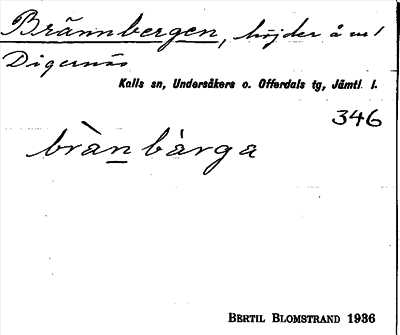 Brännbergen, höjder å nr 1
Digernäs
Kalls sn, Undersåkers o. Offerdals tg, Jämtl. l.
346
bràn bàrga
BERTIL BLOMSTRAND 1936